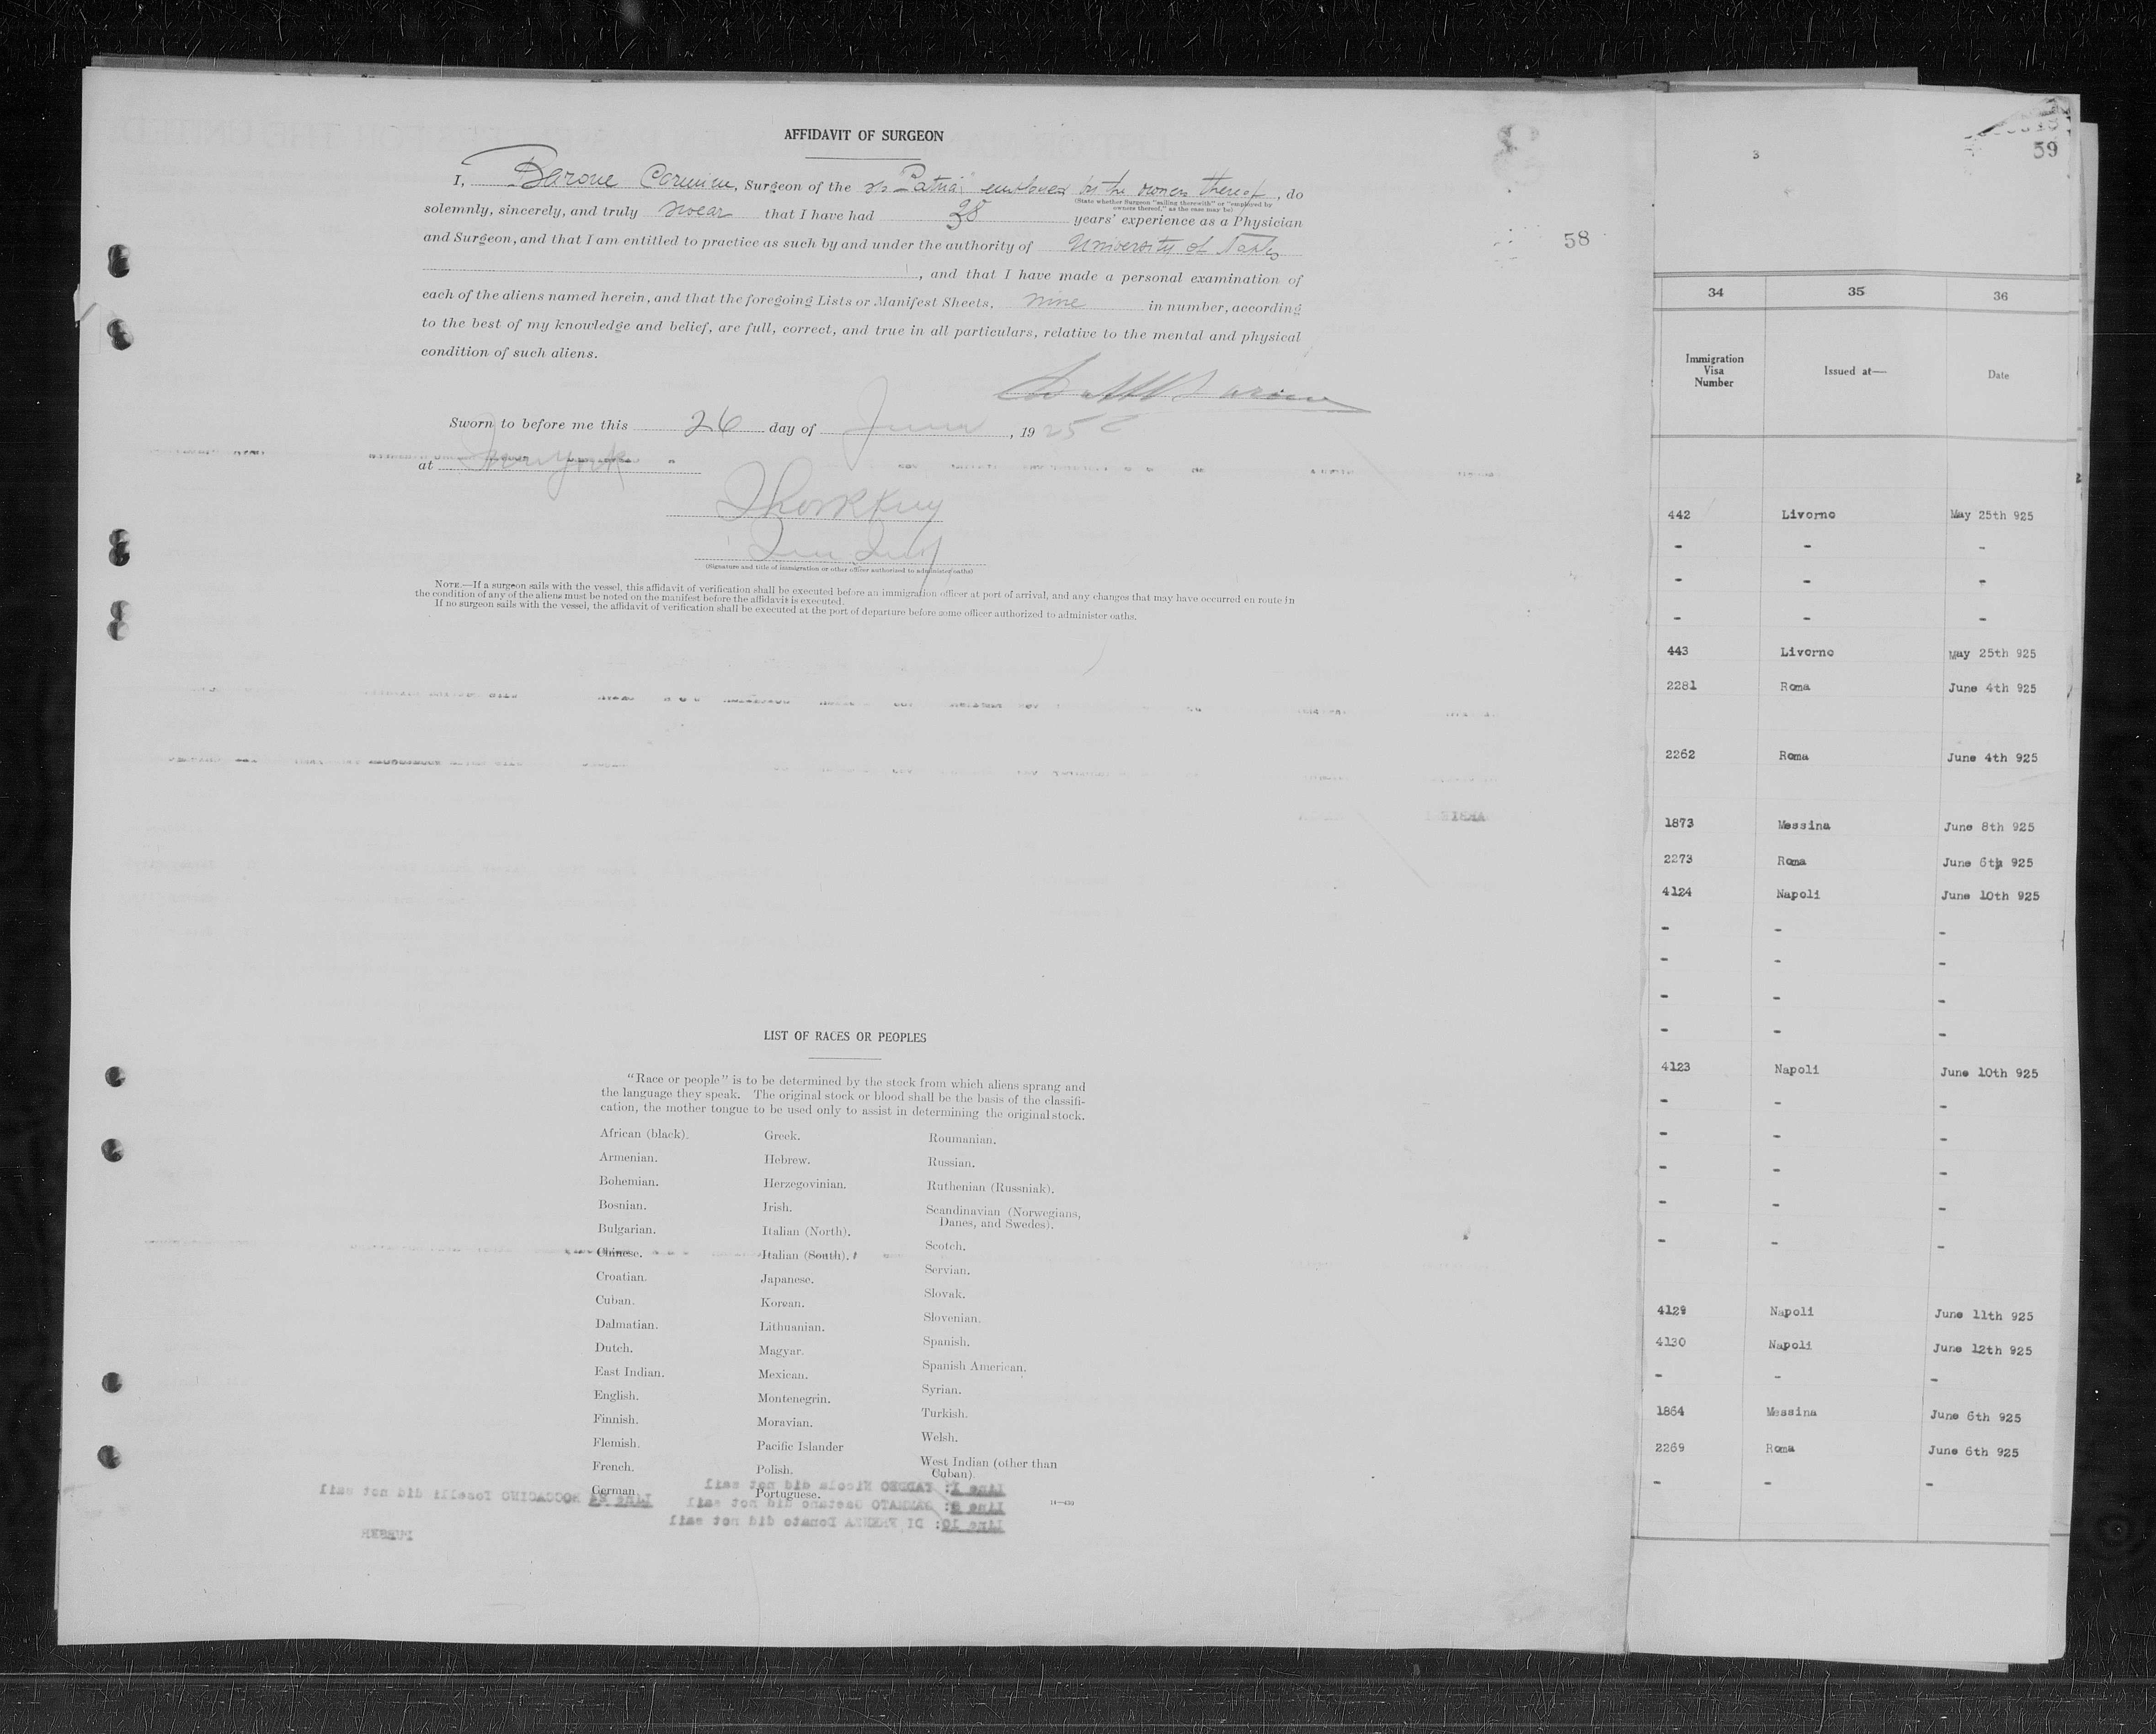 AFFIDAVIT OF SURGEON
I, Barone Carmine, Surgeon of the ss "Patria" employed by the owners thereof, do
(State whether Surgeon "sailing therewith" or "employed by
owners thereof," as the case may be)
solemnly, sincerely, and truly swear that I have had 38 years' experience as a Physician
and Surgeon, and that I am entitled to practice as such by and under the authority of University of Naples
, and that I have made a personal examination of
each of the aliens named herein, and that the foregoing Lists or Manifest Sheets, nine in number, according
to the best of my knowledge and belief, are full, correct, and true in all particulars, relative to the mental and physical
condition of such aliens.
Sworn to before me this 26 day of June, 1925
at New York
(Signature and title of immigration or other officer authorized to administer oaths)
NOTE.—If a surgeon sails with the vessel, this affidavit of verification shall be executed before an immigration officer at port of arrival, and any changes that may have occurred en route in
the condition of any of the aliens must be noted on the manifest before the affidavit is executed.
If no surgeon sails with the vessel, the affidavit of verification shall be executed at the port of departure before some officer authorized to administer oaths.
58
LIST OF RACES OR PEOPLES
"Race or people" is to be determined by the stock from which aliens sprang and
the language they speak. The original stock or blood shall be the basis of the classifi-
cation, the mother tongue to be used only to assist in determining the original stock.
African (black).
Armenian.
Bohemian.
Bosnian.
Bulgarian.
Chinese.
Croatian.
Cuban.
Dalmatian.
Dutch.
East Indian.
English.
Finnish.
Flemish.
French.
German.
Greek.
Hebrew.
Herzegovinian.
Irish.
Italian (North).
Italian (South).
Japanese.
Korean.
Lithuanian.
Magyar.
Mexican.
Montenegrin.
Moravian.
Pacific Islander
Polish.
Portuguese.
Roumanian.
Russian.
Ruthenian (Russniak).
Scandinavian (Norwegians,
Danes, and Swedes).
Scotch.
Servian.
Slovak.
Slovenian.
Spanish.
Spanish American.
Syrian.
Turkish.
Welsh.
West Indian (other than
Cuban).
14—430
3
59
34 35 36
Immigration
Visa
Number
Issued at—
Date
442 Livorno May 25th 925
- - -
- - -
- - -
443 Livorno May 25th 925
2281 Roma June 4th 925
2262 Roma June 4th 925
1873 Messina June 8th 925
2273 Roma June 6th 925
4124 Napoli June 10th 925
- - -
- - -
- - -
- - -
4123 Napoli June 10th 925
- - -
- - -
- - -
- - -
- - -
4129 Napoli June 11th 925
4130 Napoli June 12th 925
- - -
1864 Messina June 6th 925
2269 Roma June 6th 925
- - -